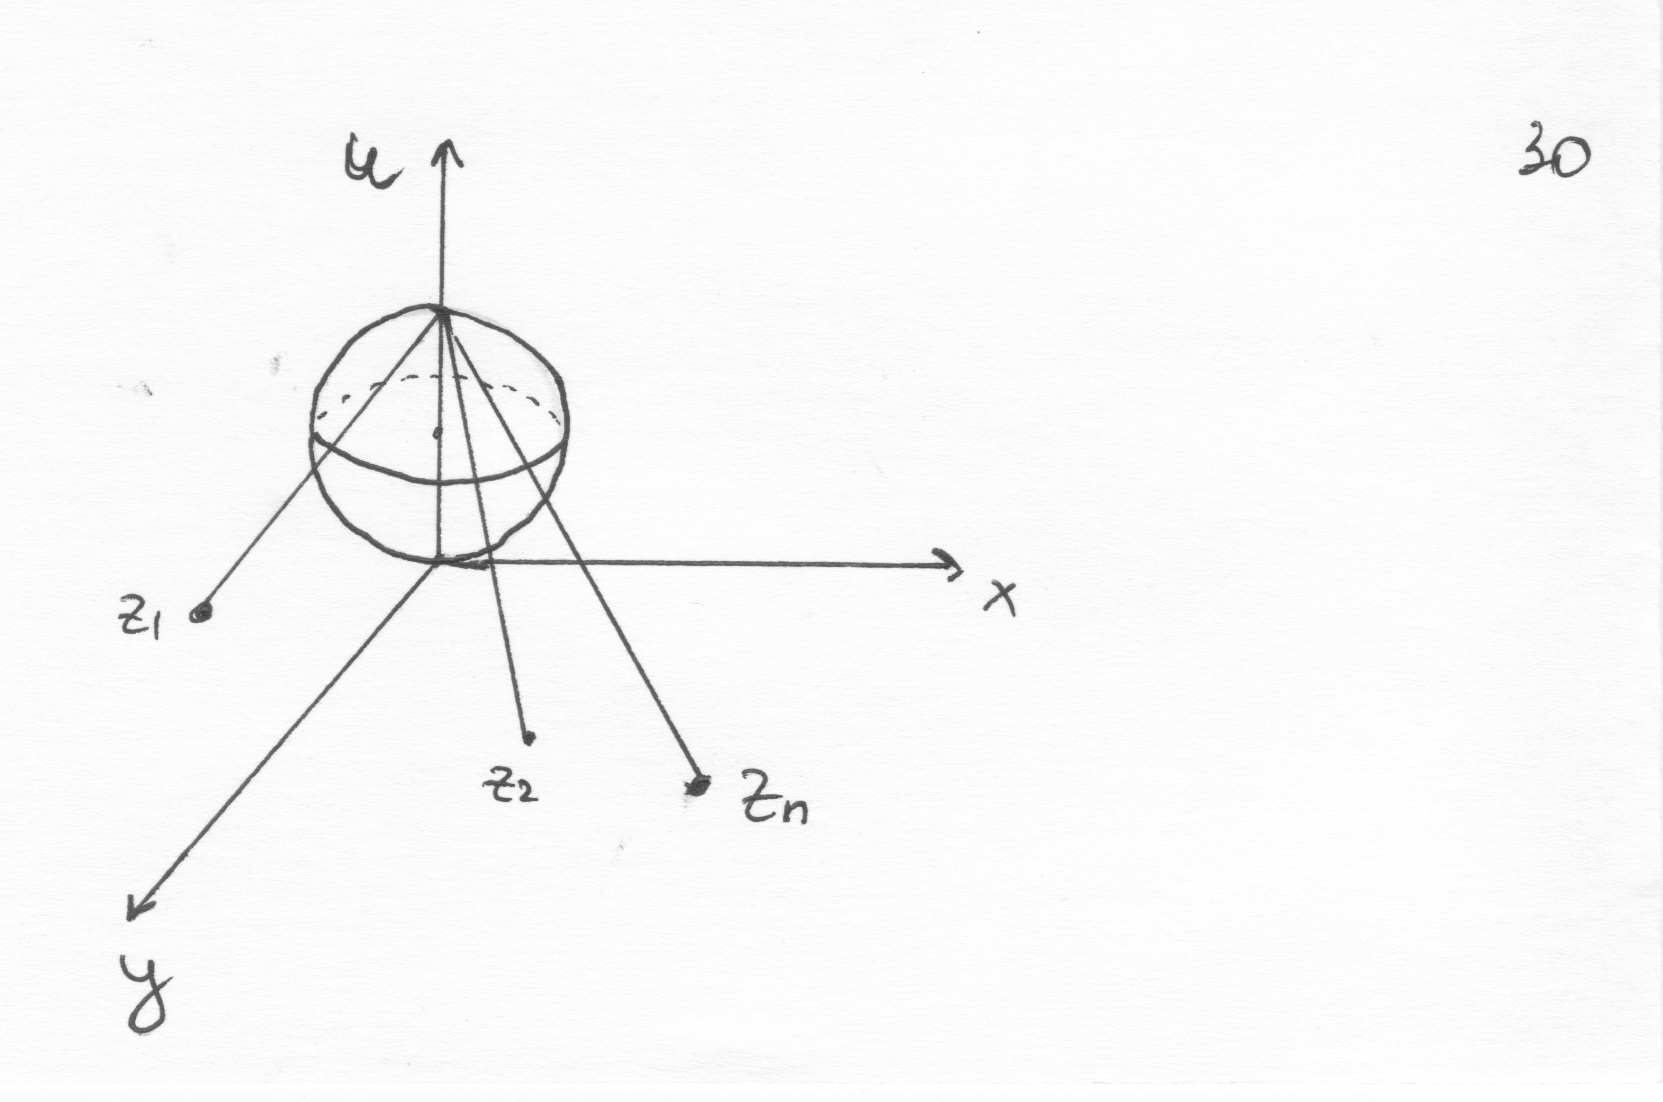 u
30
x
z1
z2
zn
y